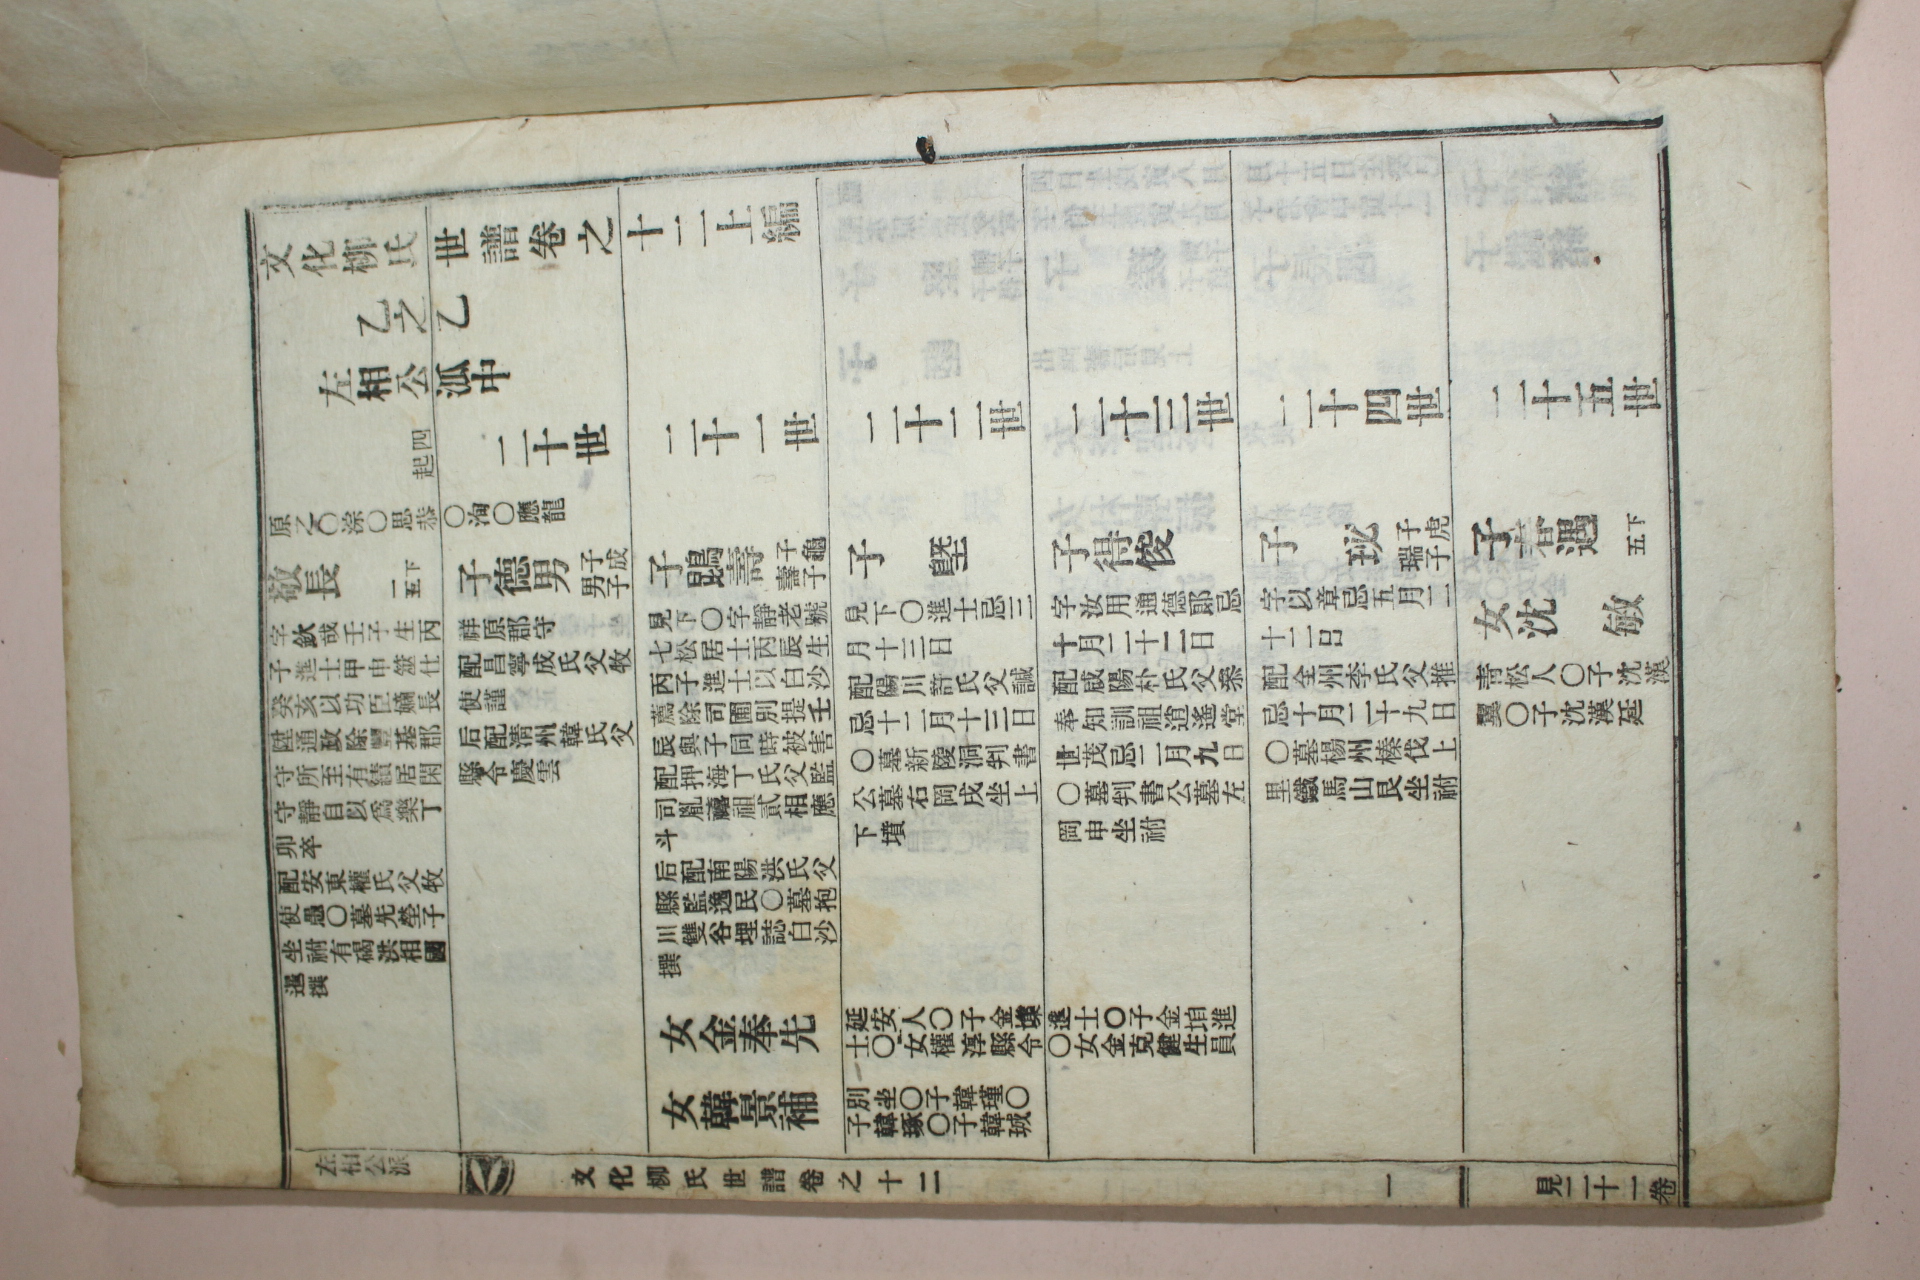 文化柳氏世譜卷之十二上編
乙之乙
左相公派中
四起
二十世
二十一世
二十二世
二十三世
二十四世
二十五世
原之〇淙〇思恭〇洵〇應龍
敬長
下一五
字欽哉壬子生丙
子進士甲申筮仕
癸亥以功臣嫡長
陞通政除豐基郡
守所至有績居閑
守靜自以爲樂丁
卯卒
配安東權氏父牧
使愚〇墓先塋子
坐祔有碣洪相國
暹撰
子德男
子成男子
祥原郡守
配昌寧成氏父牧
使謹
后配淸州韓氏父
縣令慶雲
子鵾壽
子龜壽子
見下〇字靜老號
七松居士丙辰生
丙子進士以白沙
薦除司圃別提壬
辰與子同時被害
配押海丁氏父監
司胤禧祖貳相應
斗
后配南陽洪氏父
縣監逸民〇墓抱
川雙谷埋誌白沙
撰
女金奉先
延安人〇子金㙉進士〇子金垍進
士〇女權淳縣令〇女金克健生員
女韓景補
別坐〇子韓瑾〇
子韓琢〇子韓珹
子塈
見下〇進士忌三
月十三日
配陽川許氏父諴
忌十二月十三日
〇墓新陵洞判書
公墓右岡戌坐上
下墳
子得俊
字汝用通德郞忌
十月二十二日
配咸陽朴氏父叅
奉知訓祖逍遙堂
世茂忌二月九日
〇墓判書公墓左
岡申坐祔
子珌
子虎瑞子
字以章忌五月二
十二日
配全州李氏父推
忌十月二十九日
〇墓楊州榛伐上
里鐵馬山艮坐祔
子春遇
下五
女沈敏
靑松人〇子沈漢
翼〇子沈漢廷
左相公派
文化柳氏世譜卷之十二
一
見二十一卷